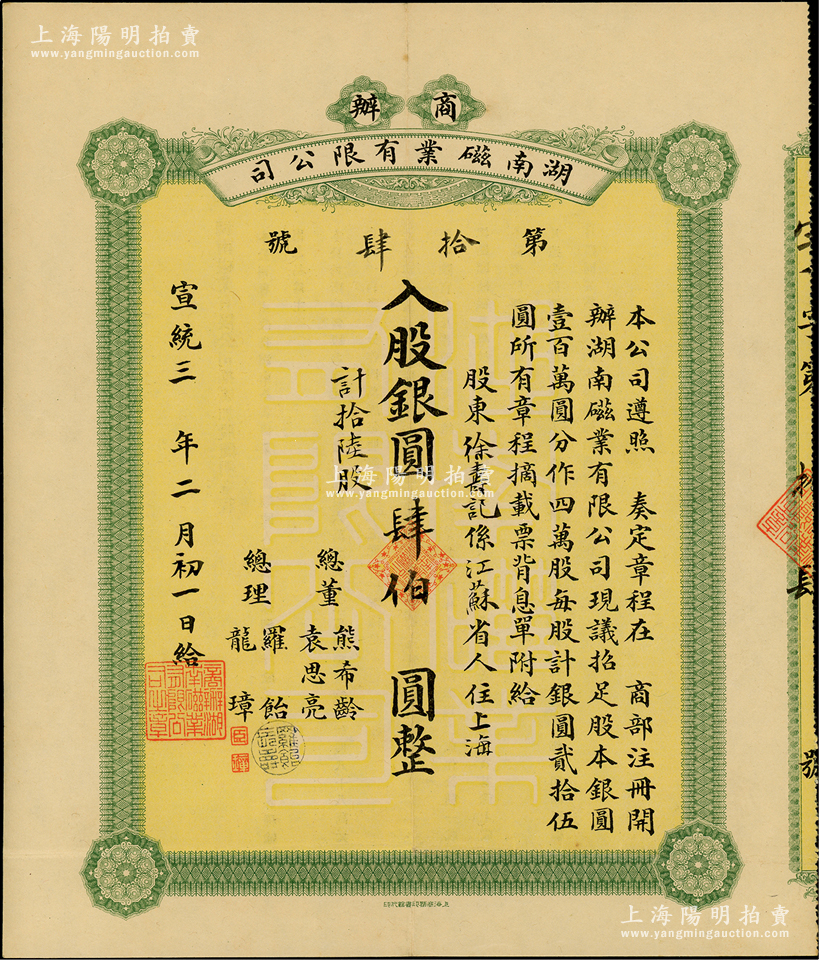 上海陽明拍賣
www.yangmingauction.com
商辦
湖南磁業有限公司
第拾肆號
本公司遵照 奏定章程在 商部注冊開
辦湖南磁業有限公司現議招足股本銀圓
壹百萬圓分作四萬股每股計銀圓貳拾伍
圓所有章程摘載票背息單附給
股東徐壽記係江蘇省人住上海
入股銀圓肆伯 圓整
計拾陸股
總董 熊希齡
袁思亮
總理 羅飴
龍璋
宣統三 年二月初一日給
商辦湖
南磁業
有限公
司之章
上海陽明拍賣
www.yangmingauction.com
號
上海陽明拍賣
www.yangmingauction.com